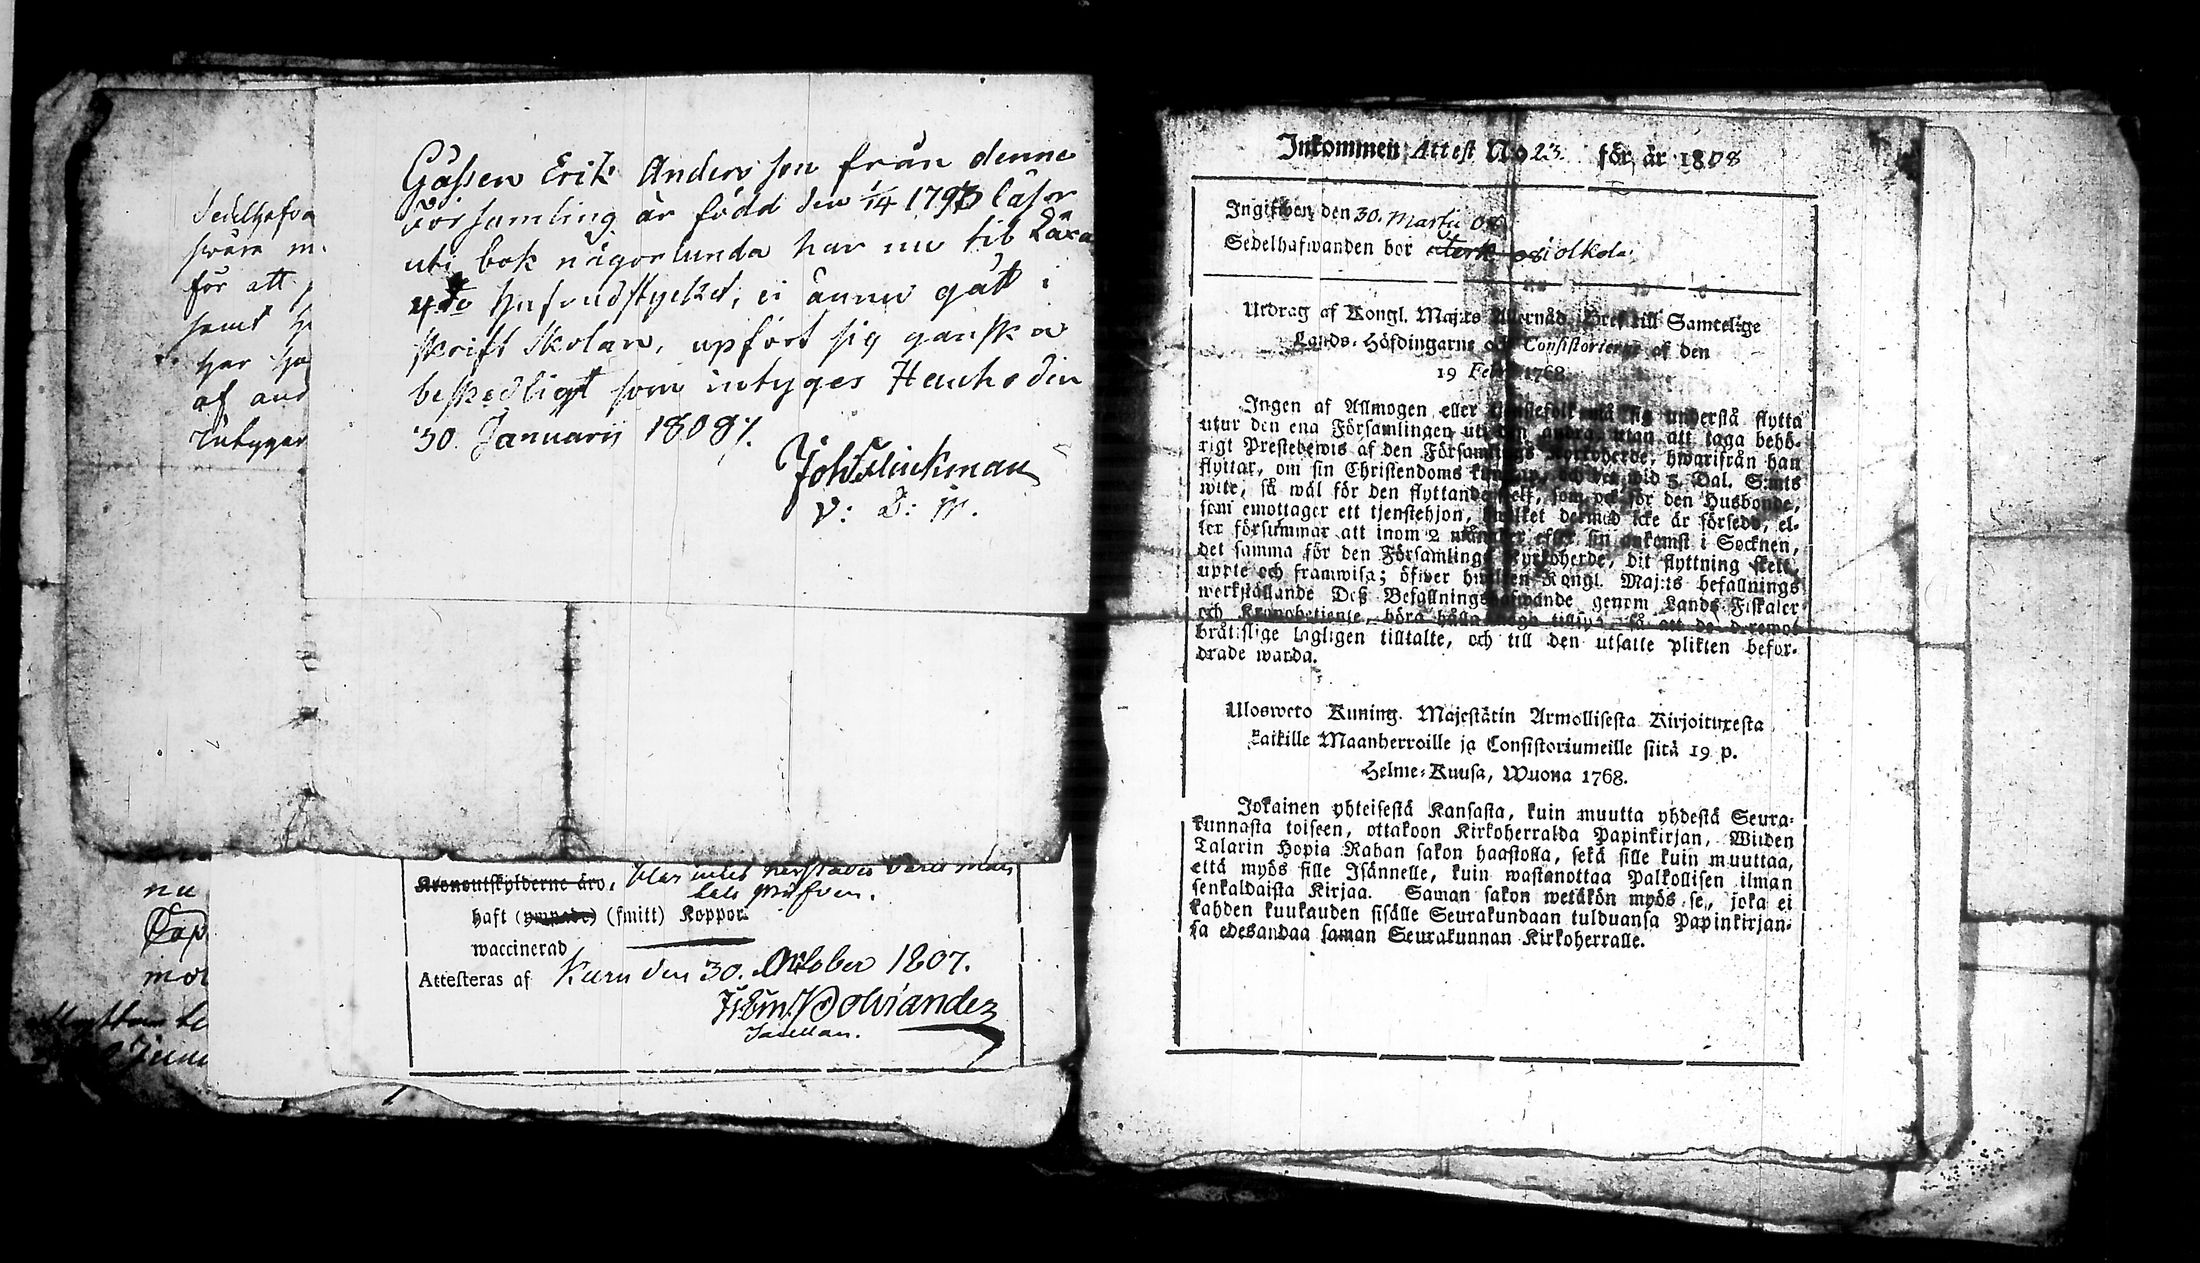 Sedelhafva
svära m
för att
samt h
har ha
af and
Intyger
Gåssen Erik Andersson från denne
församling är född den 1/14 1793 läser
uti bok någorlunda har nu til Läxa
4de hufvudstycket, ei ännu gått i
skrift Skolan, upfört sig ganska
beskedligt som intyges Heinhodin
30 Januarii 1808/.
Joh Flinkman
V: D: M.
nu
mor
Kronoutskylderne äro,
haft (ympade) (smitt) Koppor.
waccinerad
Attesteras af Kuru den 30. October 1807.
Inkommen Attest N:o 23. för år 1808
Ingifwen den 30. Martii 08
Sedelhafwanden bor
Utdrag af Kongl. Maj:ts Allernåd. Bref till Samtelige
Lands-Höfdingarne och Consistorierne af den
19 Febr. 1768.
Ingen af Allmogen eller tjenstefolk må sig understå flytta
utur den ena Församlingen uti den andra, utan att taga behö-
rigt Prestebewis af den Församlings Kyrkoherde, hwarifrån han
flyttar, om sin Christendoms kunskap, och det wid 5. Dal. S:mts
wite, så wäl för den flyttande sjelf, som ock för den Husbonde,
som emottager ett tjenstehjon, hwilket dermed icke är försedd, el-
ler försummar att inom 2 månader efter sin ankomst i Socknen,
det samma för den Församlings Kyrkoherde, dit flyttning skett,
uppte och framwisa; öfwer hwilken Kongl. Maj:ts befallnings
werkställande Deß Befallningshafwande genom Lands-Fiskaler
och Kronobetjente, böra hålla noga tillsyn, så att de deremot
bråtslige lagligen tilltalte, och till den utsatte plikten befor-
drade warda.
Ulosweto Kuning. Majestätin Armollisesta Kirjoituxesta
kaikille Maanherroille ja Consistoriumeille siitä 19 p.
Helme-Kuusa, Wuona 1768.
Jokainen yhteisestä Kansasta, kuin muutta yhdestä Seura-
kunnasta toiseen, ottakoon Kirkoherralda Papinkirjan, Wiiden
Talarin Hopia Rahan sakon haastolla, sekä sille kuin muuttaa,
että myös sille Isännelle, kuin wastanottaa Palkollisen ilman
senkaldaista Kirjaa. Saman sakon wetäkön myös se, joka ei
kahden kuukauden sisälle Seurakundaan tulduansa Papinkirjan-
sa edesandaa saman Seurakunnan Kirkoherralle.